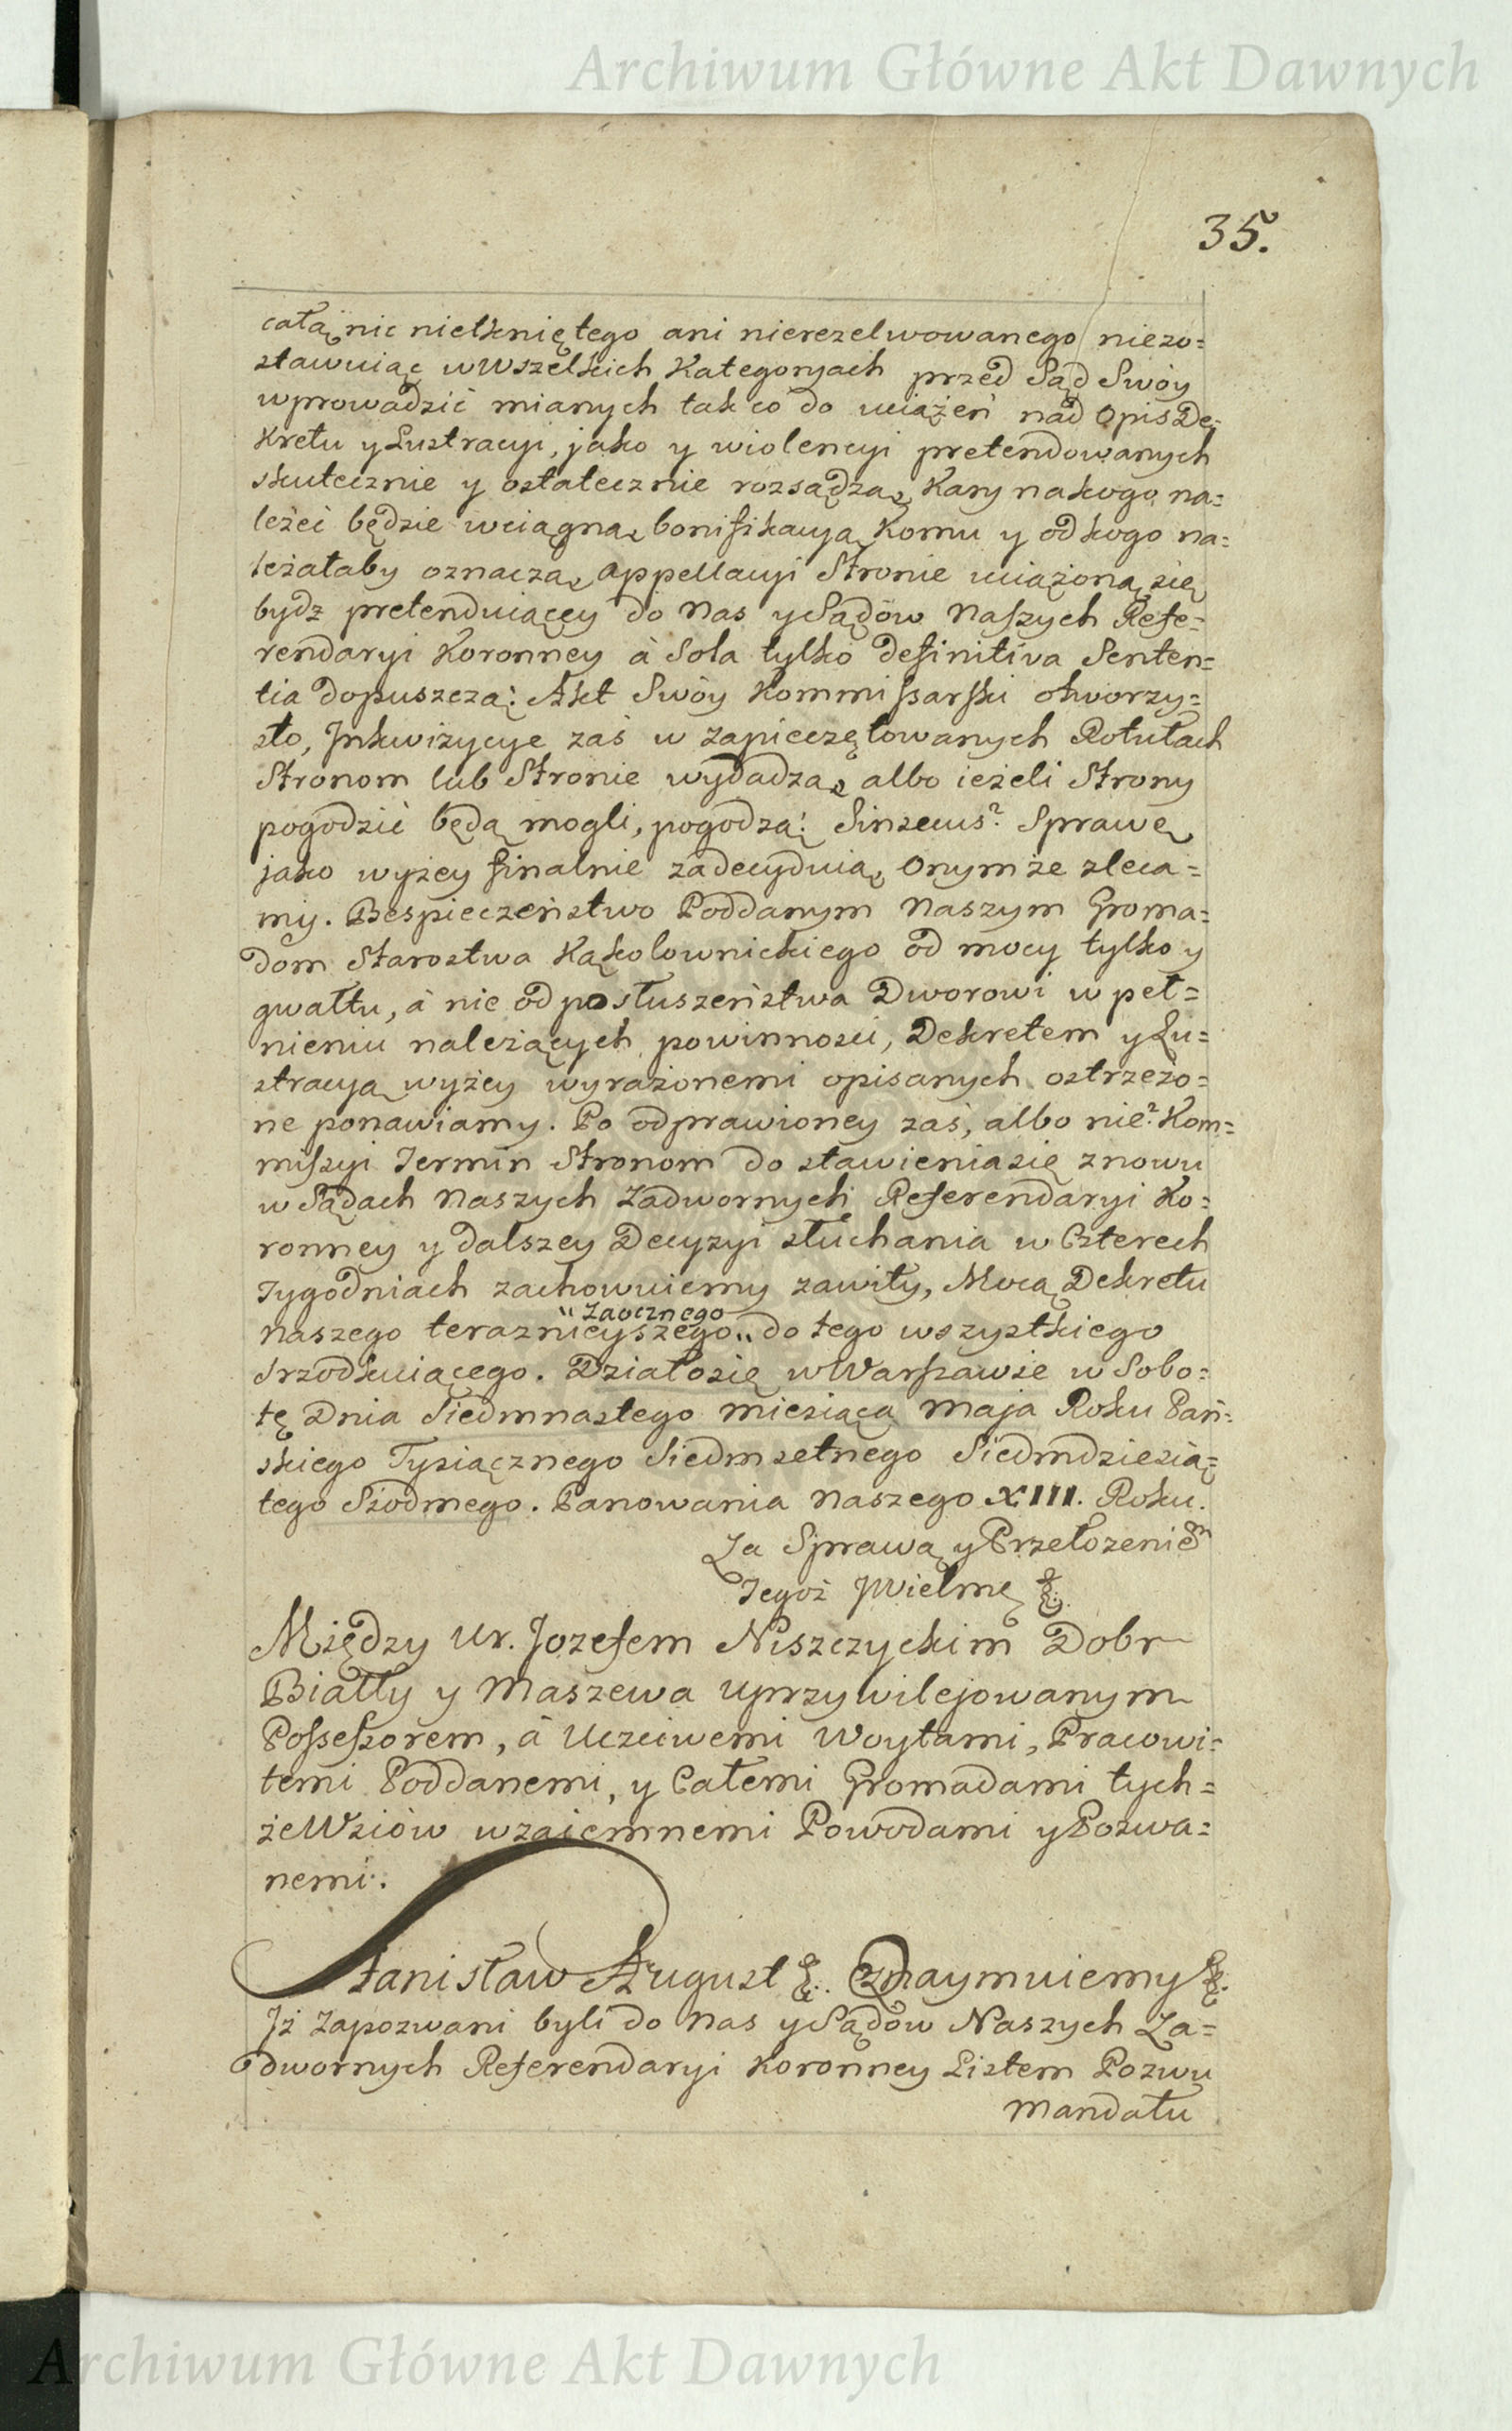 Archiwum Główne Akt Dawnych
35.
całą nic nietkniętego ani nierezelwowanego niezo=
stawuiąc wWszelkich Kategoryach przed Sąd Swóy
wprowadzić mianych tak co do uciążeń nad Opis De=
kretu y Lustracyi, jako y wiolencyi pretendowanych
skutecznie y ostatecznie rozsądzą, Kary na kogo na=
leżeć będzie wciągną, bonifikacyą Komu y od kogo na=
leżałaby oznaczą, Appellacyi Stronie uciążoną się
bydz pretenduiącey do Nas y Sądów Naszych Refe=
rendaryi Koronney à Sola tylko definitiva Senten=
tia dopuszczą: Akt Swóy Kommissarski otworzy=
sto, Jnkwizycye zaś w zapieczętowanych Rotułach
Stronom lub Stronie wydadzą, albo ieżeli Strony
pogodzić będą mogli, pogodzą: Sinsecus? Sprawę
jako wyżey finalnie zadecyduią, Onymże zleca=
my. Bespieczeństwo Poddanym Naszym Groma=
dom Starostwa Kąkolownickiego od mocy tylko y
gwałtu, à nie od posłuszeństwa Dworowi w peł=
nieniu należących powinności, Dekretem y Lu=
stracyą wyżey wyrażonemi opisanych ostrzeżo=
ne ponawiamy. Po odprawioney zaś, albo nie? Kom=
missyi Termin Stronom do stawienia się znowu
w Sądach Naszych Zadwornych Referendaryi Ko=
ronney y dalszey Decyzyi słuchania w Czterech
Tygodniach zachowuiemy zawity, Mocą Dekretu
" Zaocznego
naszego teraznieyszego " do tego wszystkiego
srzodkuiącego. Działo się w Warszawie w Sobo=
tę Dnia Siedmnastego miesiąca Maja Roku Pań=
skiego Tysiącznego Siedmsetnego Siedmdziesią=
tego Siodmego. Panowania Naszego XIII. Roku.
Za Sprawą y Przełożeniem
Jegoż JWielmę &.
Między Ur. Jozefem Niszczyckim Dobr
Biały y Maszewa Uprzywilejowanym
Possessorem, à Uczciwemi Woytami, Pracowi=
temi Poddanemi, y Całemi Gromadami tych=
że Wsiów wzajemnemi Powodami y Pozwa=
nemi.
Stanisław August &. Oznaymuiemy &.
Jż Zapozwani byli do Nas y Sądów Naszych Za=
dwornych Referendaryi Koronney Listem Pozwu
Mandatu
Archiwum Główne Akt Dawnych